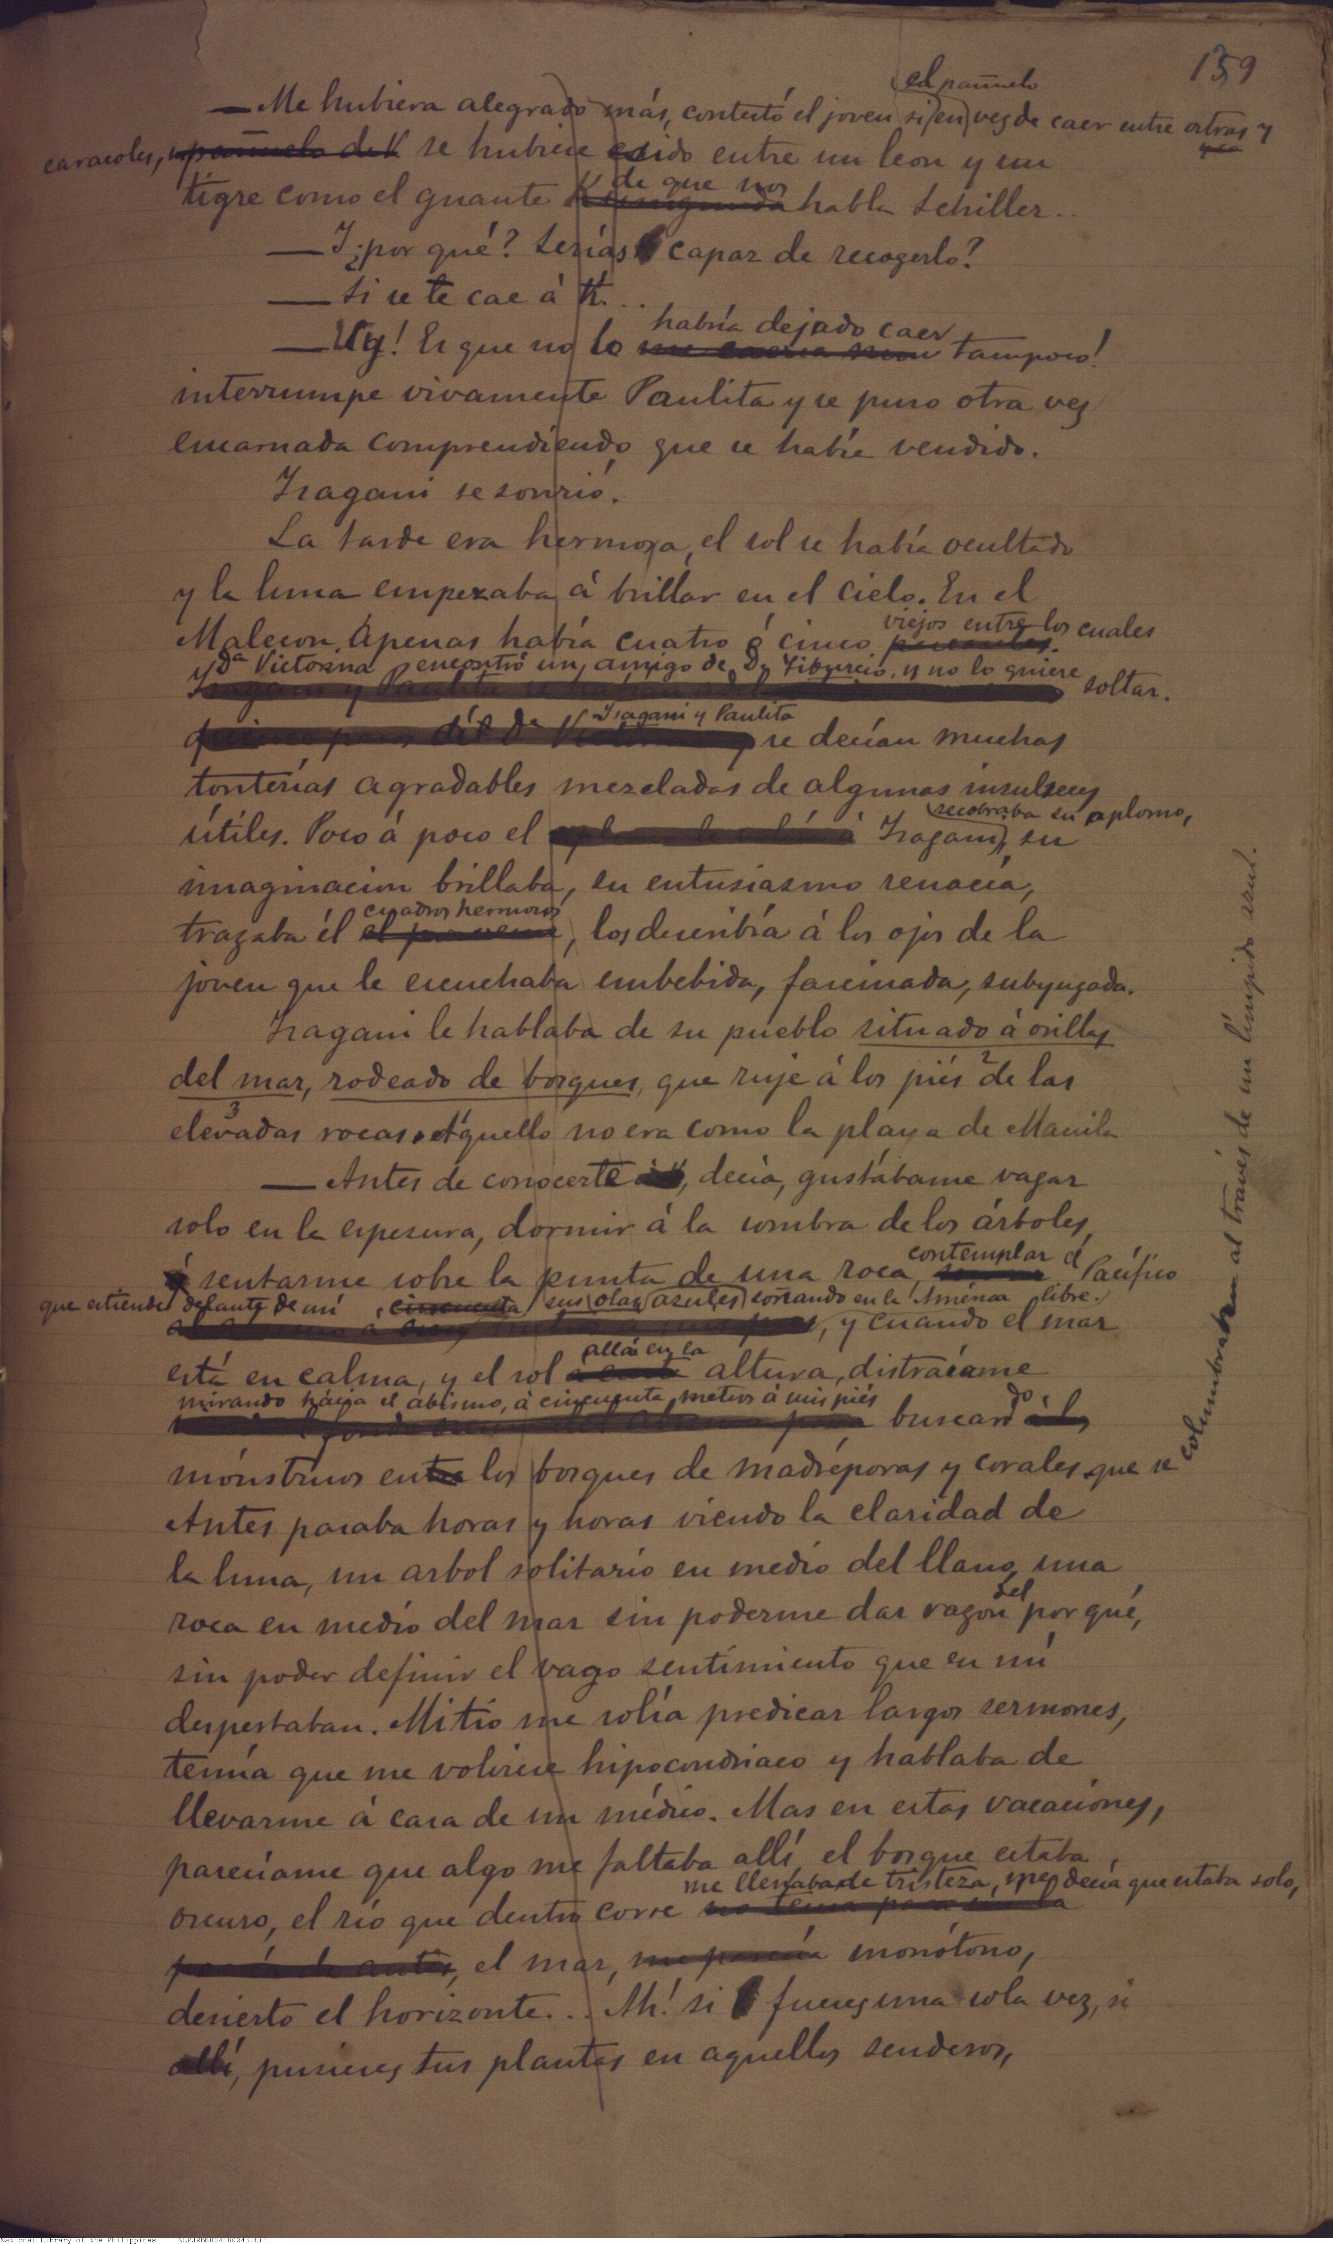 159
el pañuelo
— Me hubiera alegrado más, contestó el joven si en vez de caer entre ostras y
caracoles, se hubiese caido entre un leon y un
de que nos
tigre como el guante habla Schiller..
— Y ¿por qué? Serías capaz de recogerlo?
— Si se te cae á tí...
habría dejado caer
— Uy! Es que no lo tampoco!
interrumpe vivamente Paulita y se puso otra vez
encarnada comprendiendo que se había vendido.
Isagani se sonrió.
La tarde era hermosa, el sol se había ocultado
y la luna empezaba á brillar en el cielo. En el
viejos entre los cuales
Malecon, Apenas había cuatro ó cinco
y Dª Victorina encontró un amigo de D. Tiburcio, y no lo quiere soltar.
Isagani y Paulita
se decían muchas
tonterías agradables mezcladas de algunas insulseces
recobraba su aplomo,
útiles. Poco á poco el Isagani, su
imaginacion brillaba, su entusiasmo renacía,
cuadros hermosos
trazaba él , los describía á los ojos de la
joven que le escuchaba embebida, fascinada, subyugada.
Isagani le hablaba de su pueblo situado á orillas
del mar, rodeado de bosques, que ruje á los piés 2 de las
3
elevadas rocas. Aquello no era como la playa de Manila
— Antes de conocerte , decía, gustábame vagar
solo en la espesura, dormir á la sombra de los árboles,
contemplar el
ó sentarme sobre la punta de una roca, Pacífico
que extiende delante de mí , cincuenta sus olas azules soñando en la América libre.
, y cuando el mar
allá en la
está en calma, y el sol altura, distraíame
mirando hácia el abismo, á cincuenta metros á mis piés
buscando
mónstruos en los bosques de madréporas y corales que se
columbraban al través de un límpido azul.
Antes pasaba horas y horas viendo la claridad de
la luna, un arbol solitario en medio del llano, una
del
roca en medio del mar sin poderme dar razon por qué,
sin poder definir el vago sentimiento que en mí
despertaban. Mi tio me solía predicar largos sermones,
temía que me volviese hipocondriaco y hablaba de
llevarme á casa de un médico. Mas en estas vacaciones,
parecíame que algo me faltaba allí, el bosque estaba
me llenaba de tristeza, me decía que estaba solo,
oscuro, el río que dentro corre
, el mar, monótono,
desierto el horizonte... Ah! si fueses una sola vez, si
allí, pusieses tus plantas en aquellos senderos,